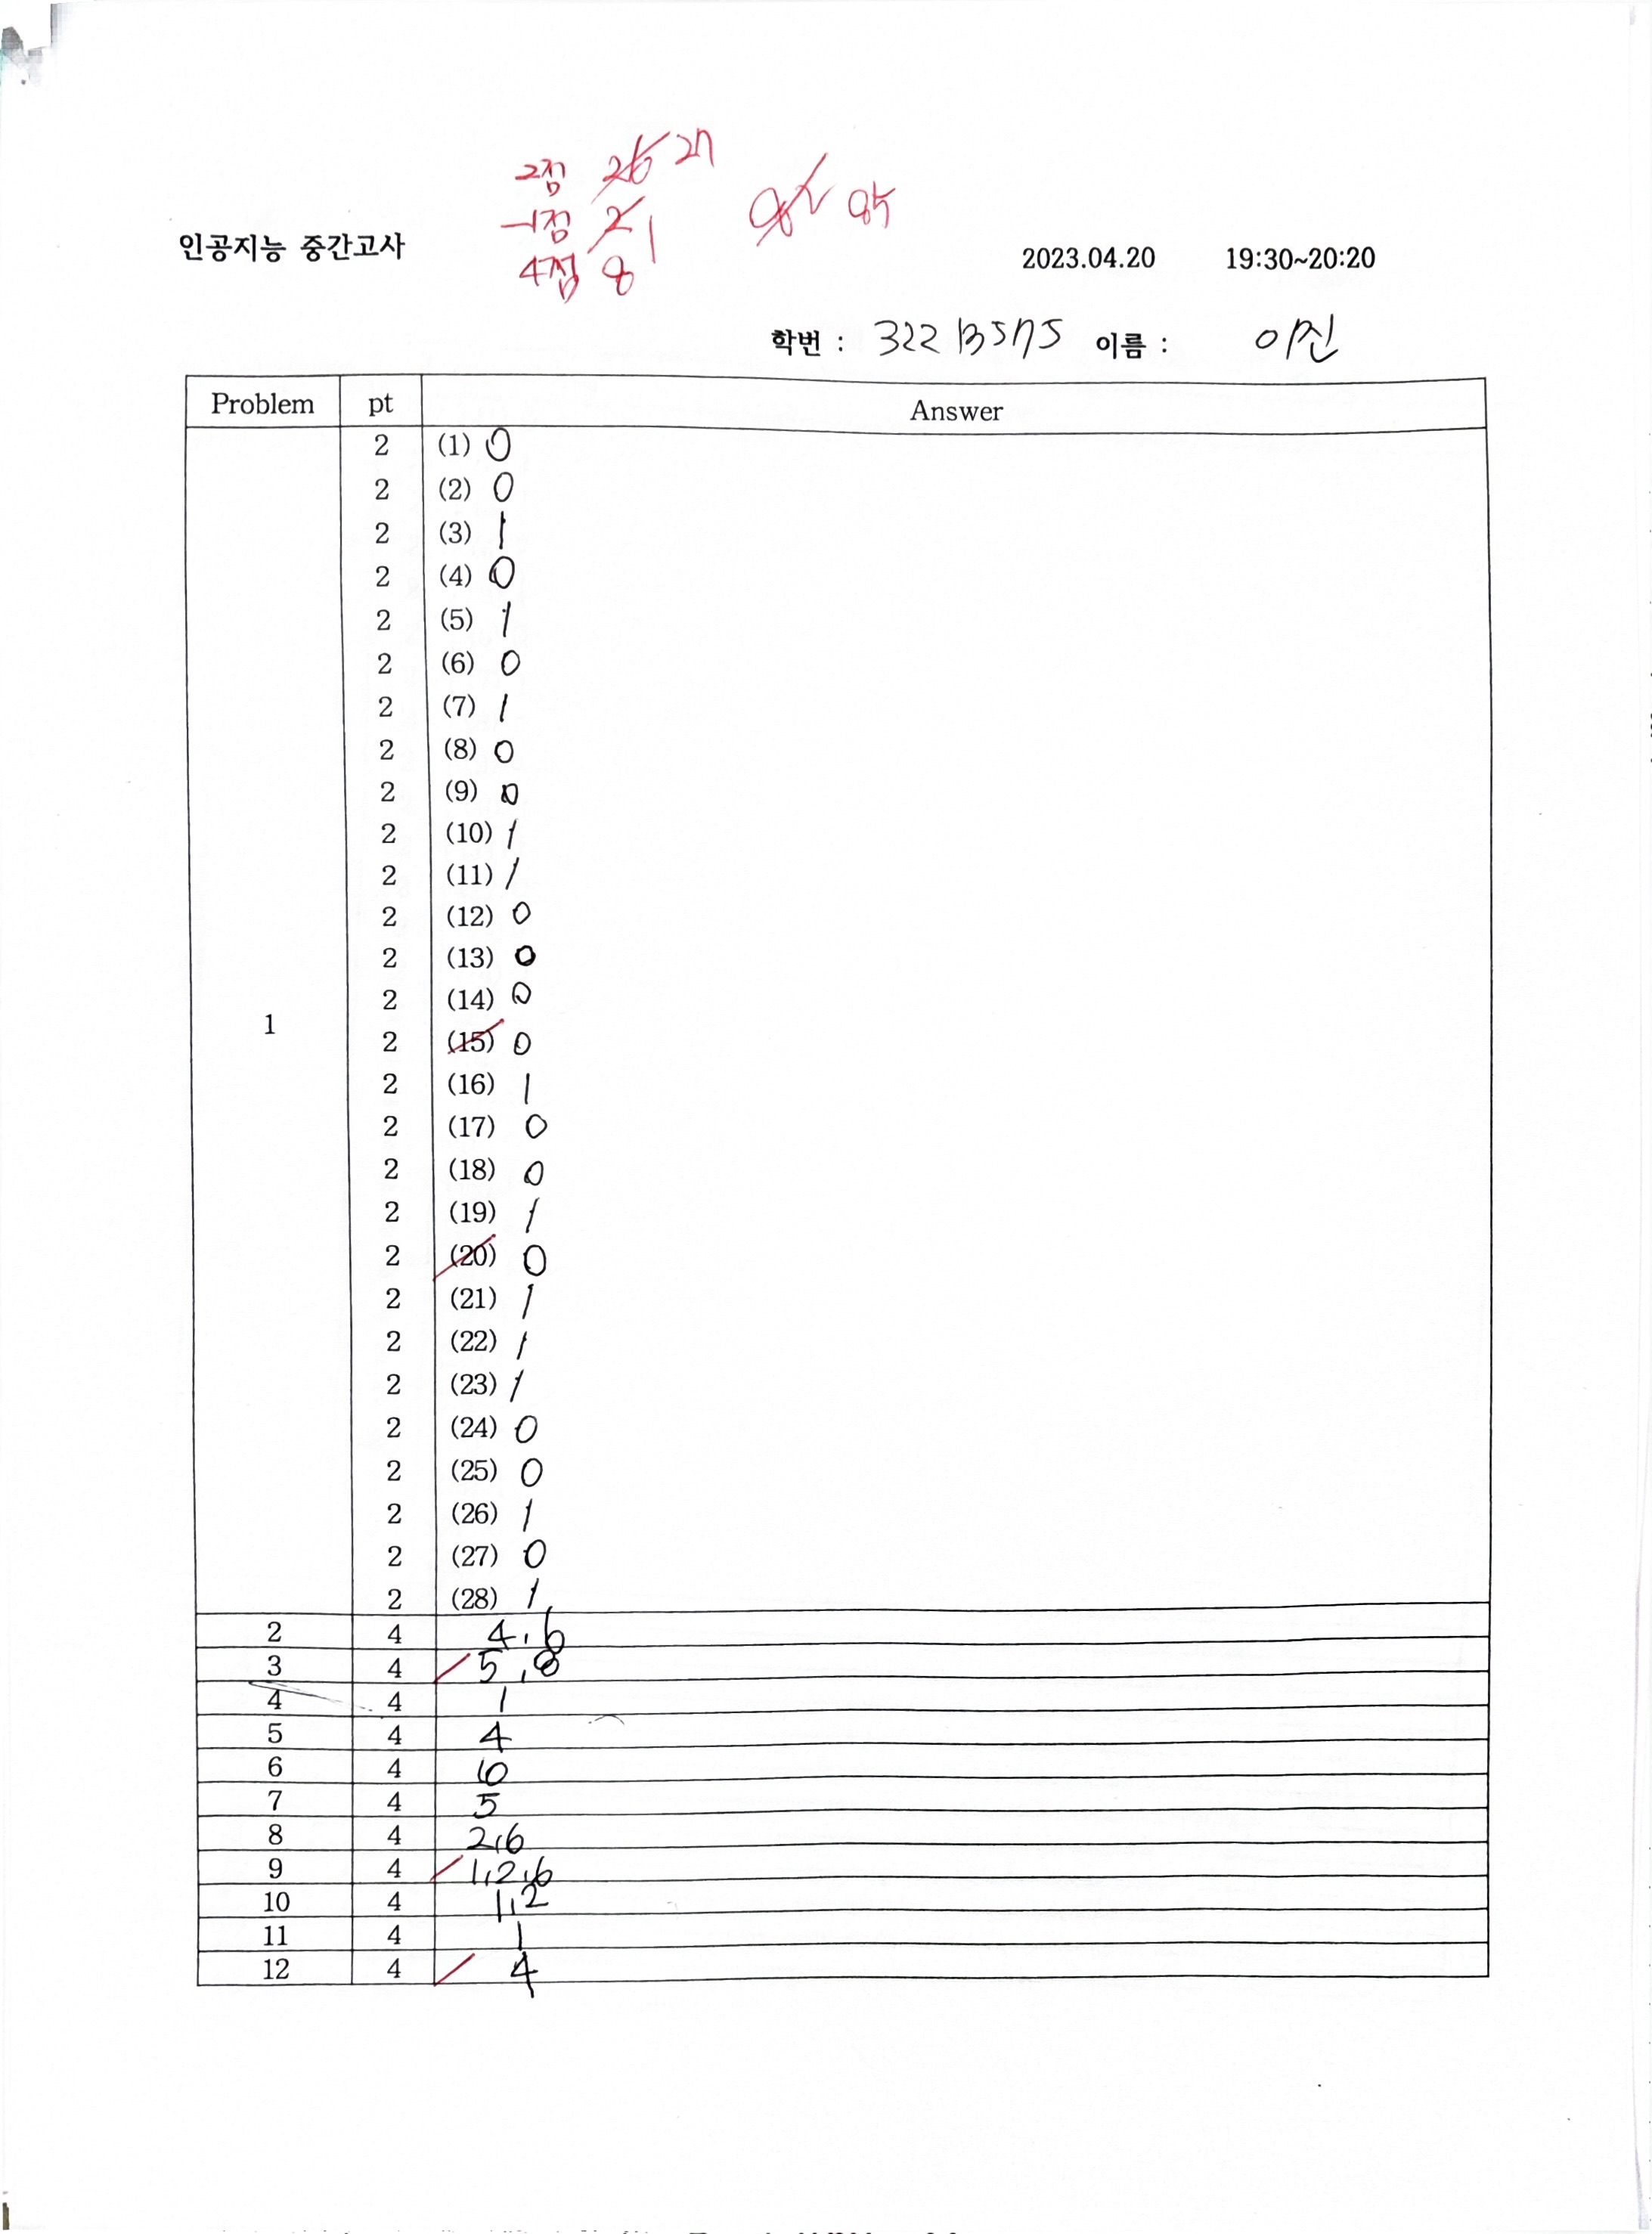 2점 26 27
-1점 2 1
4점 8
82 85
인공지능 중간고사
2023.04.20 19:30~20:20
학번 : 이름 : 이진
Problem pt Answer
2 (1) 0
2 (2) 0
2 (3) 1
2 (4) 0
2 (5) 1
2 (6) 0
2 (7) 1
2 (8) 0
2 (9) 0
2 (10) 1
2 (11) 1
2 (12) 0
2 (13) 0
2 (14) 0
1 2 (15) 0
2 (16) 1
2 (17) 0
2 (18) 0
2 (19) 1
2 (20) 0
2 (21) 1
2 (22) 1
2 (23) 1
2 (24) 0
2 (25) 0
2 (26) 1
2 (27) 0
2 (28) 1
2 4 4,6
3 4 5,8
4 4 1
5 4 4
6 4 10
7 4 5
8 4 2,6
9 4 1,2,6
10 4 1,2
11 4 1
12 4 4